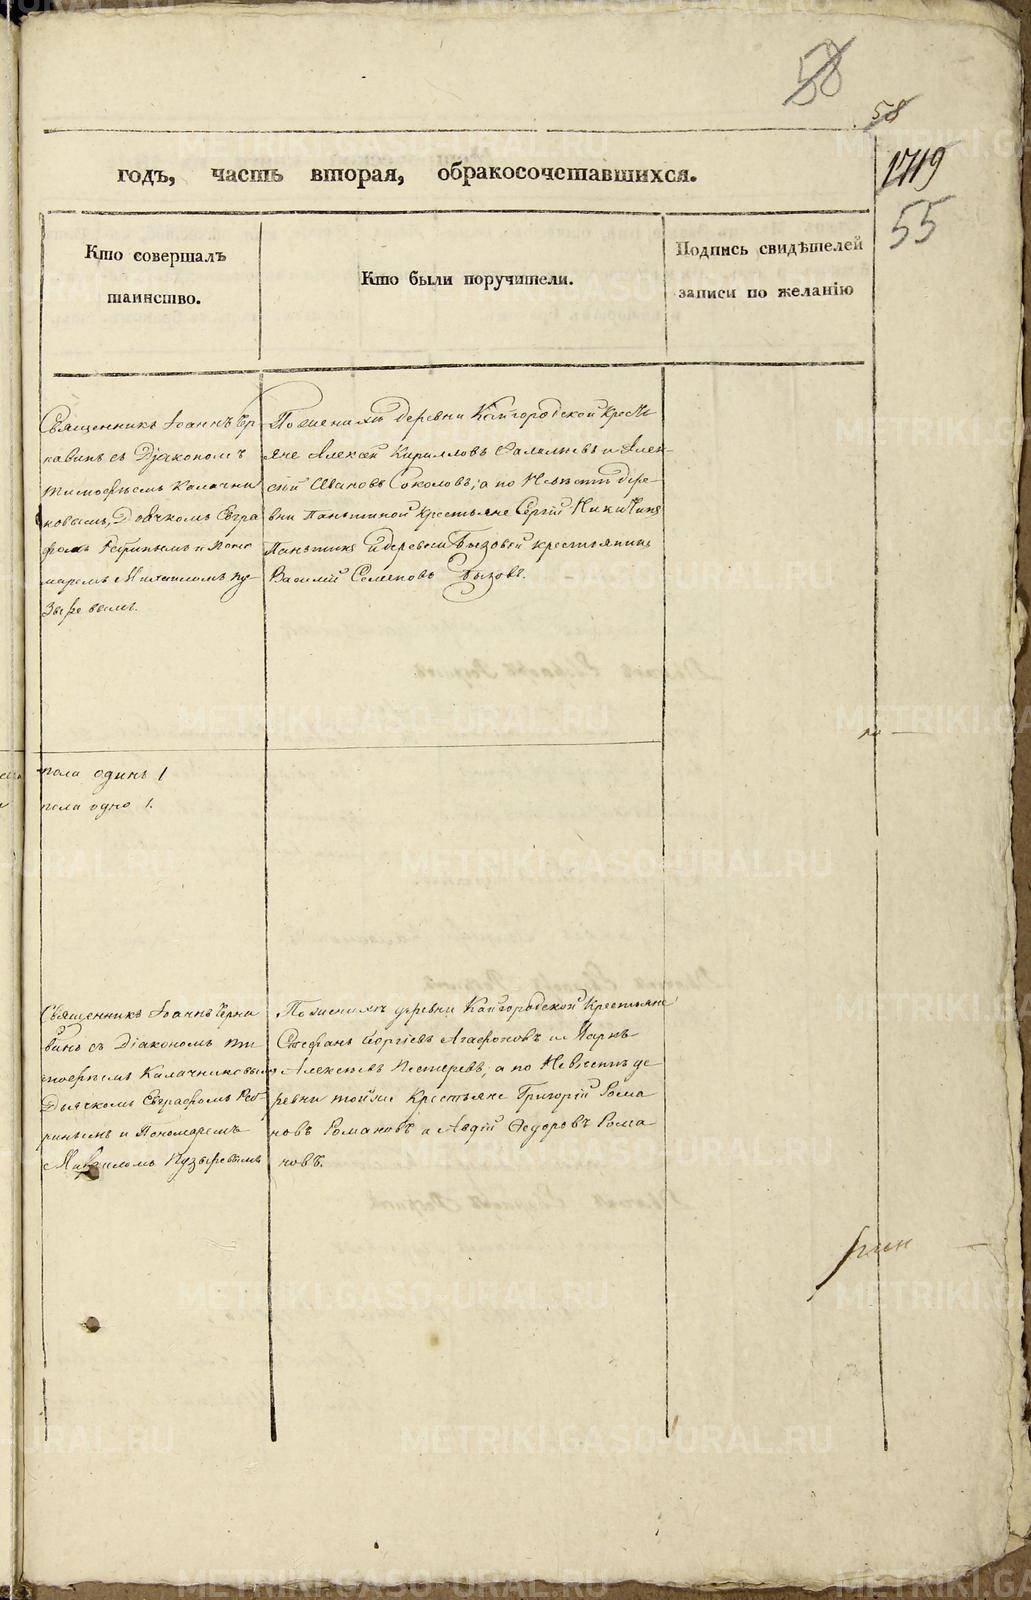 58
58
1719
55
годъ, часть вторая, обракосочетавшихся.
Кто совершалъ
таинство.
Кто были поручители.
Подпись свидѣтелей
записи по желанію
Священникъ Іоаннъ Чер
навинъ съ Діакономъ
Тимофѣемъ Калачни
ковымъ, Дьячкомъ Евгра
фомъ Рѣпинымъ и Поно
маремъ Михаиломъ Пу-
зыревымъ.
По женихѣ деревни Кайгородской кресть
яне Алексѣй Кирилловъ и Алек-
сѣй Ивановъ Соколовъ; а по Невѣстѣ дере-
вни Паньшиной крестьяне Сергій Никитинъ
Паньшинъ и деревни Бызовой крестьянинъ
Василій Семеновъ Бызовъ.
пола одинъ 1
пола одно 1.
Священникъ Іоаннъ Черна
винъ съ Діакономъ Ти
мофѣемъ Калачниковымъ
Дьячкомъ Евграфомъ Рѣ
пинымъ и Пономаремъ
Михаиломъ Пузыревымъ
По женихѣ деревни Кайгородской Крестьяне
Стефанъ Георгіевъ Агафоновъ и Маркъ
Алексѣевъ Пестеревъ; а по Невѣстѣ де
ревни тойже Крестьяне Григорій Рома
новъ Романовъ и Авдій Ѳедоровъ Рома
новъ.
METRIKI.GASO-URAL.RU